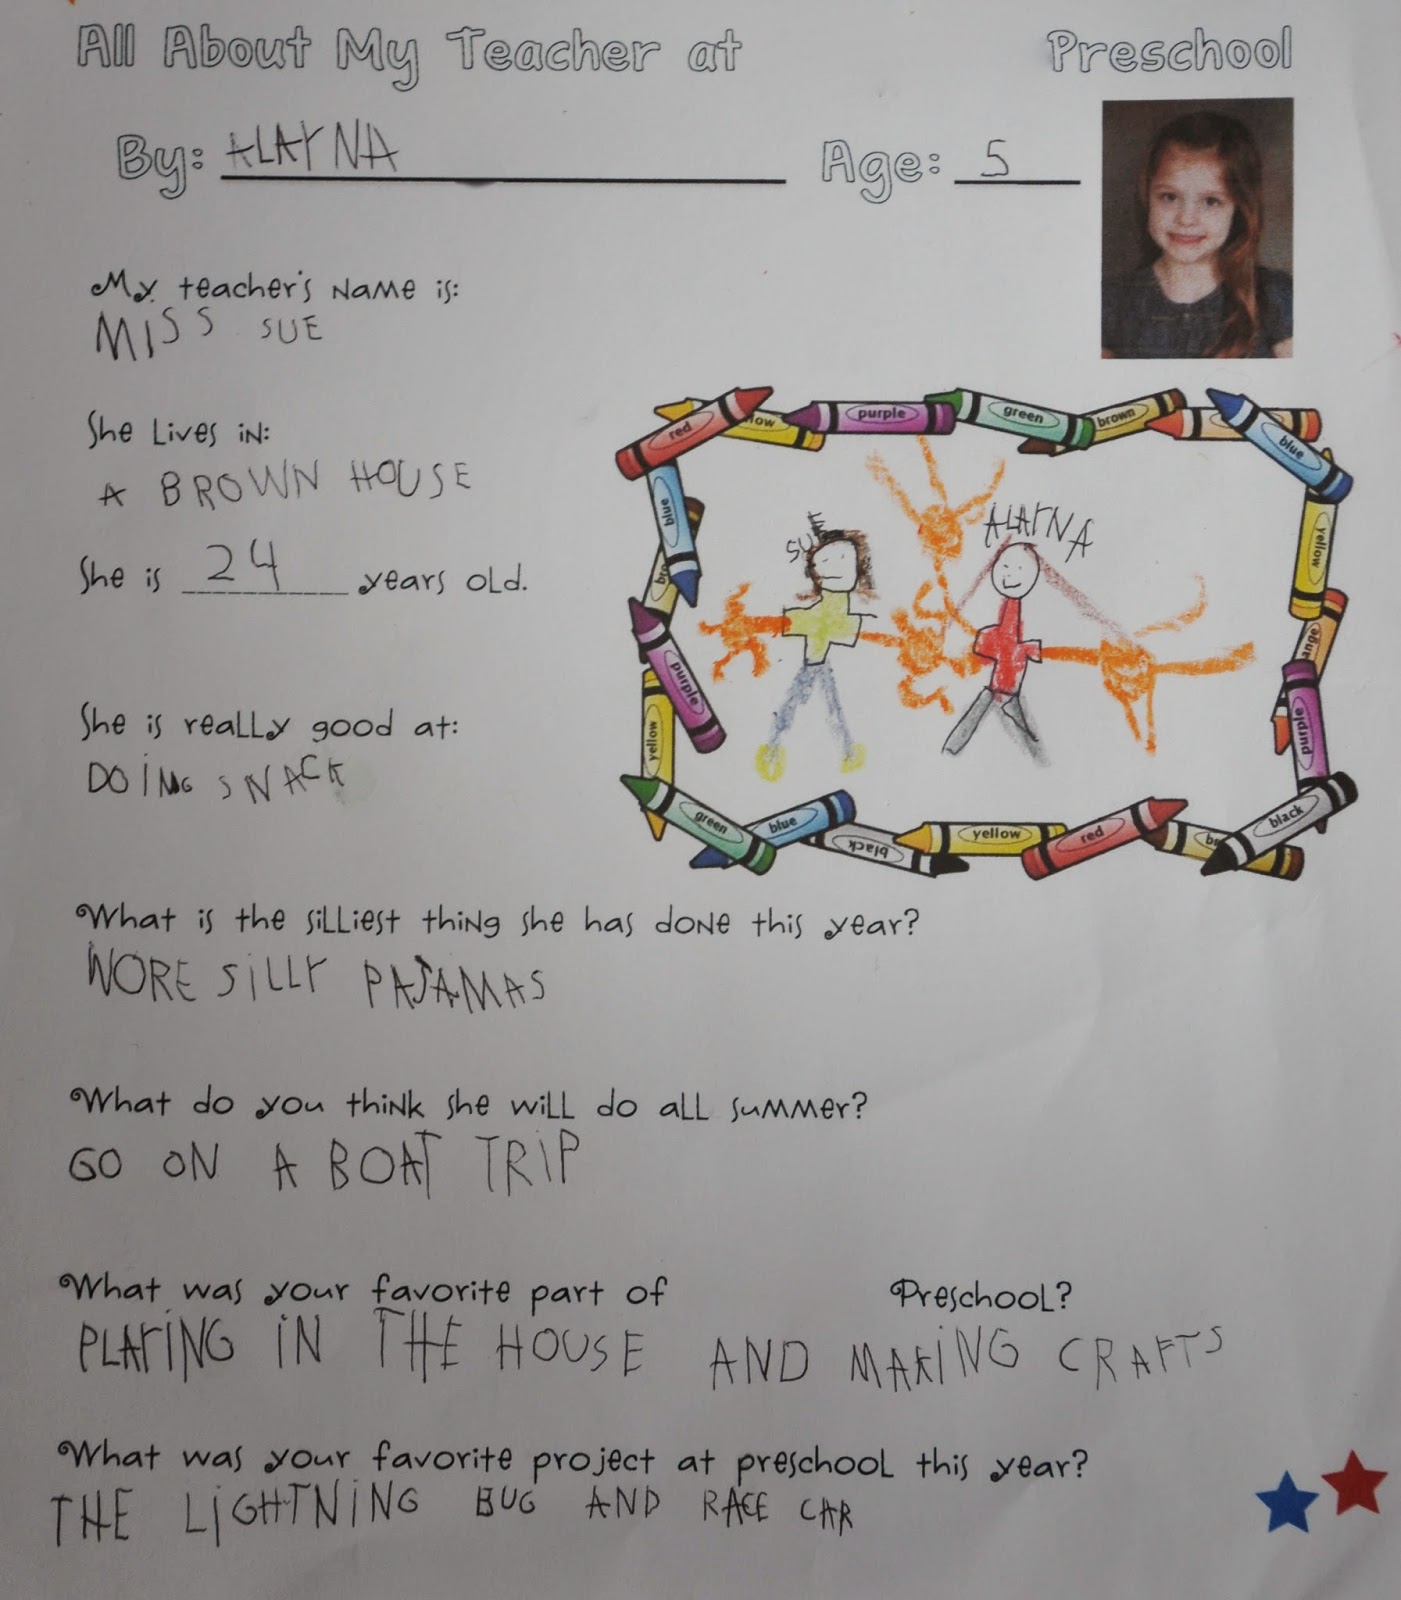 All About My Teacher at Preschool
By: ALAYNA Age: 5
My teacher's name is:
MISS SUE
She lives in:
A BROWN HOUSE
She is 24 years old.
She is really good at:
DOING SNACK
red
yellow
purple
green
brown
blue
yellow
blue
purple
yellow
green
blue
black
yellow
red
black
purple
SUE
ALAYNA
What is the silliest thing she has done this year?
WORE SILLY PAJAMAS
What do you think she will do all summer?
GO ON A BOAT TRIP
What was your favorite part of Preschool?
PLAYING IN THE HOUSE AND MAKING CRAFTS
What was your favorite project at preschool this year?
THE LIGHTNING BUG AND RACE CAR